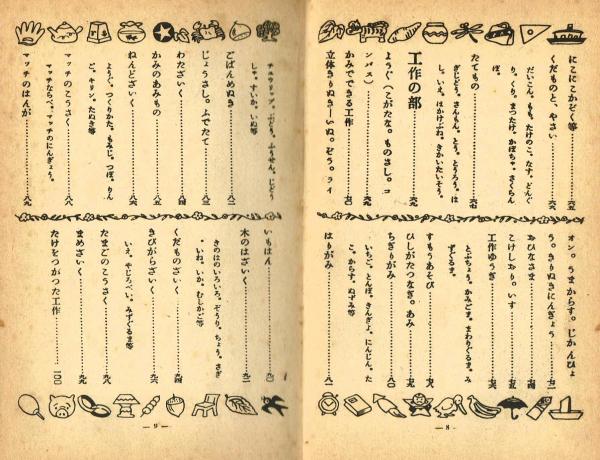 にこにこかどく等……六五
くだものと、やさい……六六
だいこん。もも。たけのこ。なす。どんぐ
り。くり。まつたけ。かぼちゃ。さくらん
ぼ。
たてもの……六七
ぎじどう。さんもん。とう。とうろう。は
し。いえ。はかけぶね。きかいたいそう。
工作の部
ようぐ（こがたな。ものさし。コ
ンパス）
かみでできる工作
立体きりぬき―いぬ。ぞう。ライ
オン。うまからす。じかんひょ
う。きりぬきにんぎょう
おひなさま
こけしおり。いす
工作ゆうぎ
とぶちょう。かみごま。まわりぐるま。み
ずぐるま。
すもうあそび
ひしがたつなぎ。あみ
ちぎりがみ……八〇
いちご。とんぼ。きんぎょ。にんじん。た
こ。からす。ねずみ等
はりがみ……八一
— 8 —
チュウリップ。ぶどう。ふうせん。じどう
しゃ。すいか。いね等
ごばんめぬき……八二
じょうさし。ふでたて……八三
わたざいく……八四
かみのあみもの……八五
ねんどざいく……八六
ようぐ。つくりかた。もみじ。つぼ。りん
ご。キリン。たぬき等
マッチのこうさく……八八
マッチならべ。マッチのにんぎょう。
マッチのはんが……八九
いもはん……九〇
木のはざいく……九二
きのはのいろいろ。ぞうり。ちょう。さぎ
。いね。いか。むしかご等
くだものざいく……九四
きびがらざいく……九六
いえ。やじろべい。みずぐるま等
たまごのこうさく……九七
まめざいく……九九
たけをつがつた工作……一〇〇
— 9 —